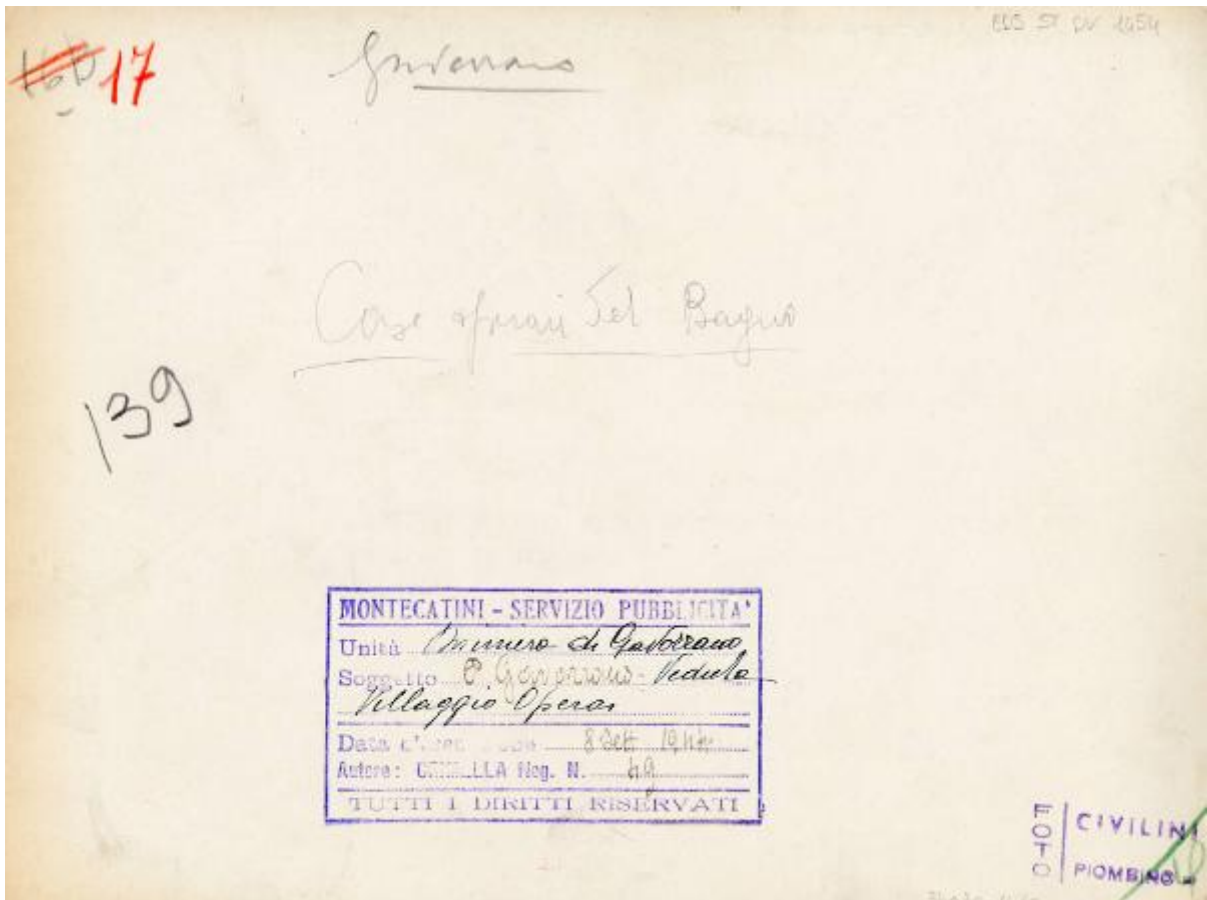 EDS ST DV 1454
16b 17
Gavorrano
Case operai del Bagno
139
MONTECATINI - SERVIZIO PUBBLICITA'
Unità Miniera di Gavorrano
Soggetto Gavorrano - Veduta
Villaggio Operai
Data
8 Sett
Autore: Neg. N. 49
TUTTI I DIRITTI RISERVATI
FOTO
CIVILINI
PIOMBINO